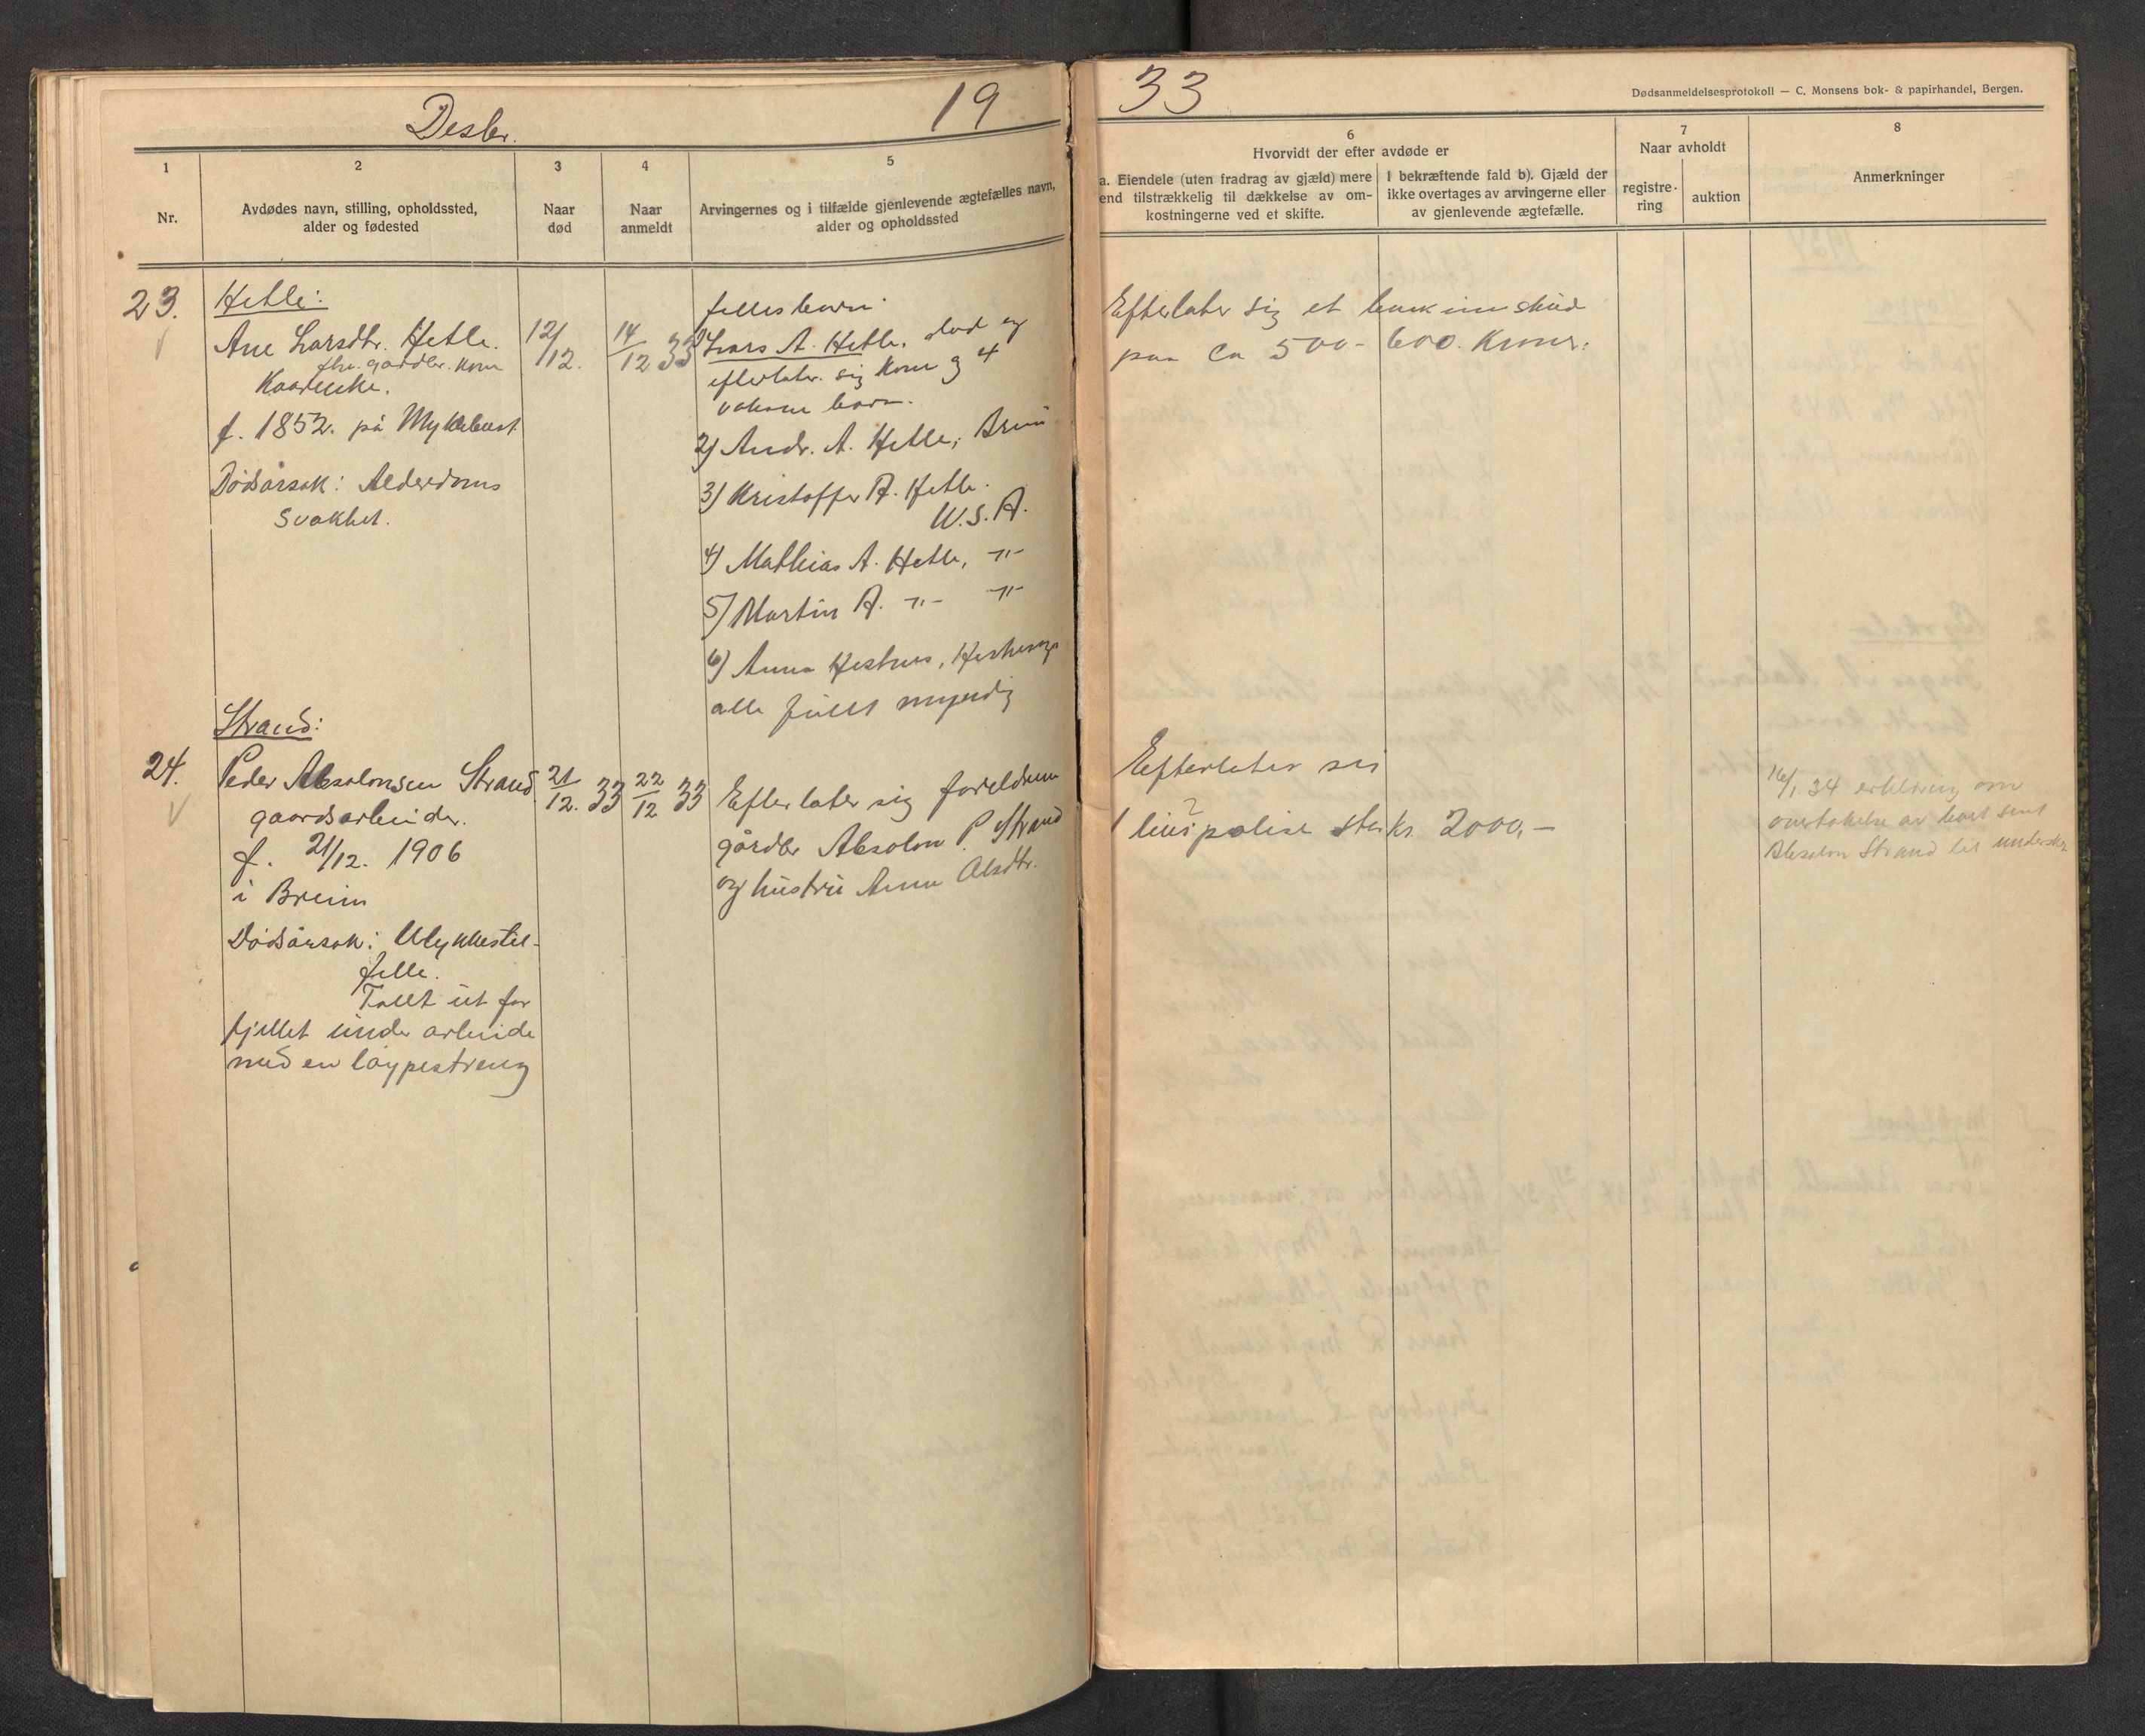 Desbr. 19
33
Dødsanmeldelsesprotokoll — C. Monsens bok- & papirhandel, Bergen.
1
Nr.
2
Avdødes navn, stilling, opholdssted,
alder og fødested
3
Naar
død
4
Naar
anmeldt
5
Arvingernes og i tilfælde gjenlevende ægtefælles navn,
alder og opholdssted
6
Hvorvidt der efter avdøde er
a. Eiendele (uten fradrag av gjæld) mere
end tilstrækkelig til dækkelse av om-
kostningerne ved et skifte.
I bekræftende fald b). Gjæld der
ikke overtages av arvingerne eller
av gjenlevende ægtefælle.
7
Naar avholdt
registre-
ring
auktion
8
Anmerkninger
23.
Hetle:
Ane Larsdtr. Hetle.
fhv. gårdbr. kone
Kaarenke.
f. 1852. på Myklebust
Dødsårsak: Alderdoms
svakhet.
12/12.
14/12 33
felles barn:
1) Lars A. Hetle, død og
efterlater sig kone og 4
voksne barn.
2) Andr. A. Hetle, Breim
3) Kristoffer A. Hetle.
U.S.A.
4) Mathias A. Hetle, -"-
5) Martin A. -"- -"-
6) Anna Hestnes,
alle fullt myndig
Efterlater sig et bankinnskud
paa ca 500-600. Kroner.
Strand:
24.
Peder Absolonsen Strand
gaardsarbeider.
f. 21/12. 1906
i Breim
Dødsårsak: Ulykkestil-
felle.
Fallt ut for
fjellet under arbeide
med en løypestreng
21/12. 33
22/12 33
Efterlater sig foreldrene
gårdbr Absolon P. Strand
og hustru Anna Olsdtr.
Efterlater sig
1 livspolise stor kr. 2000,-
16/1 34 erklæring om
overtakelse av boet sent
Absolon Strand til underskr.